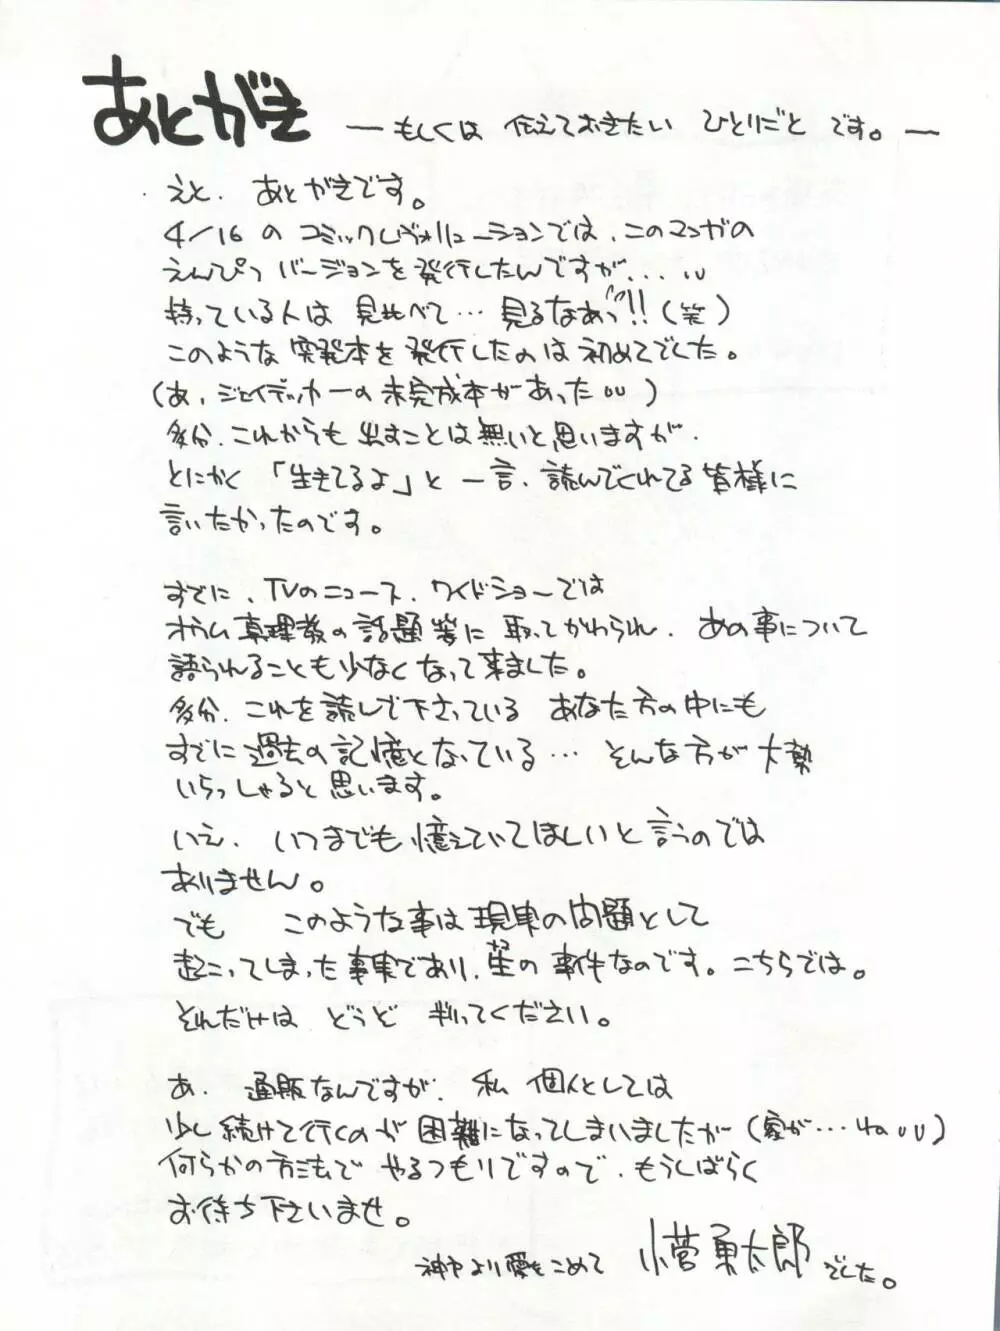 あとがき
― もしくは 伝えておきたい ひとりごと です。―
えと、あとがきです。
4/16 の コミックレヴォリューションでは、このマンガの
えんぴつ バージョンを発行したんですが、、、、
持っている人は 見比べて… 見るなあっ!!(笑)
このような 突発本を発行したのは初めてでした。
(あ、ジェイデッカーの未完成本があった)
多分、これからも 出すことは無いと思いますが、
とにかく「生きてるよ」と 一言、読んでくれてる皆様に
言いたかったのです。
すでに、TVのニュース、ワイドショーでは
オウム真理教の話題等に 取ってかわられ、あの事について
語られることも少なくなって来ました。
多分、これを読んで下さっている あなた方の中にも
すでに過去の記憶となっている… そんな方が大勢
いらっしゃると思います。
いえ、いつまでも憶えていてほしいと言うのでは
ありません。
でも このような事は現実の問題として
起こってしまった事実であり、の事件なのです。こちらでは。
それだけは どうど 判ってください。
あ、通販なんですが、私 個人としては
少し続けて行くのが困難になってしまいましたが(家が…ね)
何らかの方法で やるつもりですので、もうしばらく
お待ち下さいませ。
神戸より愛をこめて 小菅勇太郎でした。